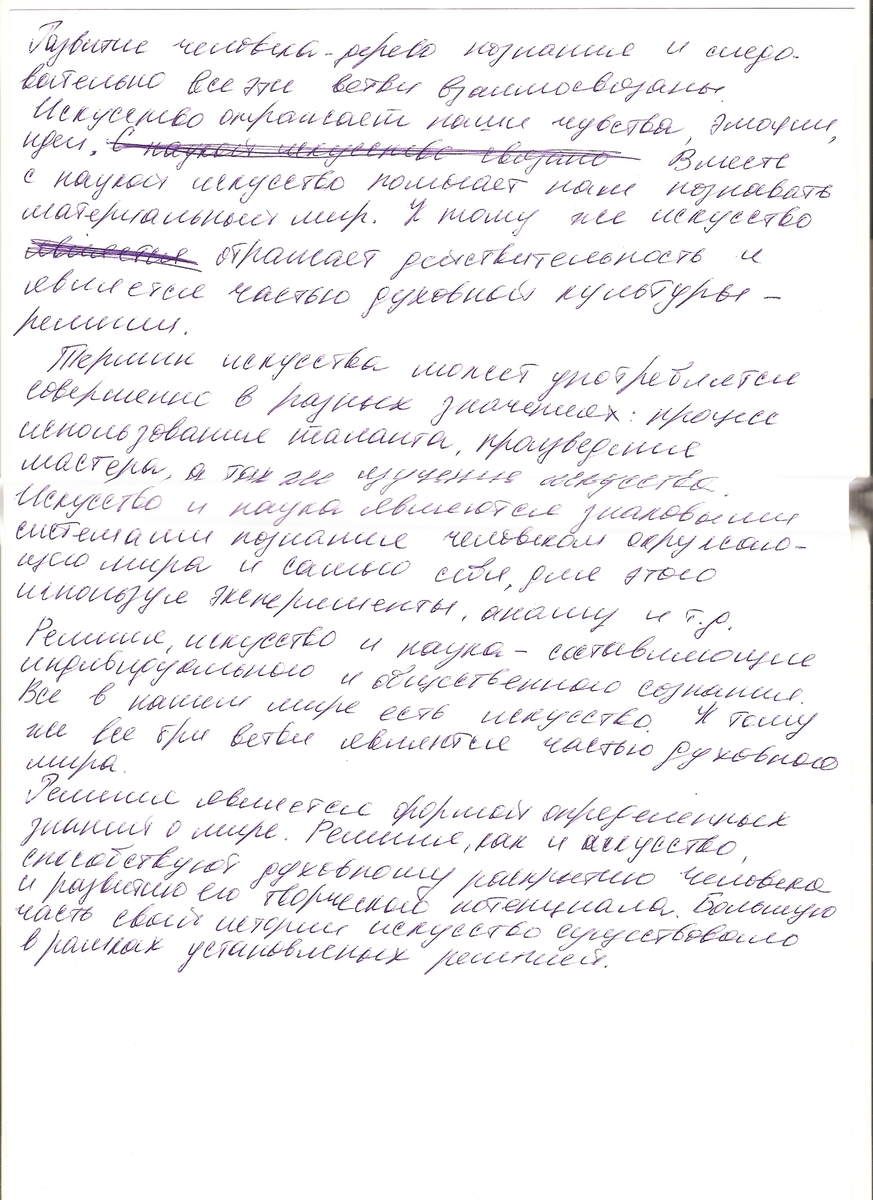 Развитие человека - дерево познания и следо-
вательно все эти ветви взаимосвязаны.
Искусство отражает наши чувства, эмоции,
идеи. С наукой искусство связано Вместе
с наукой искусство помогает нам познавать
материальный мир. К тому же искусство
является отражает действительность и
является частью духовной культуры -
религии.
Термин искусства может употребляется
совершенно в разных значениях: процесс
использования таланта, произведение
мастера, а так же изучение искусства.
Искусство и наука являются знаковыми
системами познания человеком окружаю-
щего мира и самого себя, для этого
используя эксперименты, анализ и т.д.
Религия, искусство и наука - составляющие
индивидуального и общественного сознания.
Все в нашем мире есть искусство. К тому
же все три ветви являются частью духовного
мира.
Религия является формой определенных
знаний о мире. Религия, как и искусство,
способствуют духовному раскрытию человека
и развитию его творческого потенциала. Большую
часть своей истории искусство существовало
в рамках установленных религией.